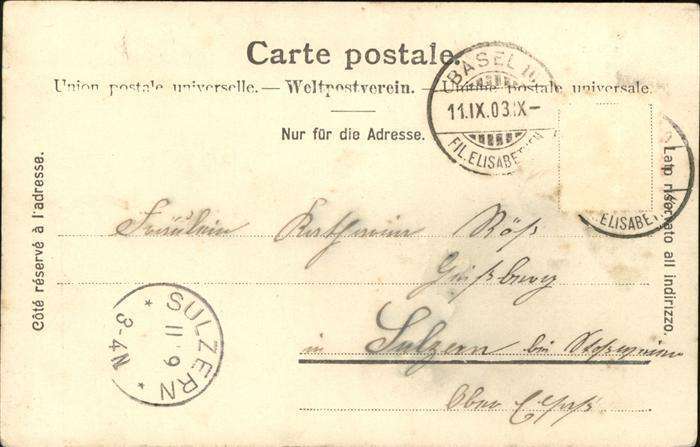 Carte postale.
Union postale universelle. — Weltpostverein. — Unione postale universale.
Nur für die Adresse.
BASEL
11.IX.03.IX-
FIL. ELISABETHEN
ELISABET
Côté réservé à l'adresse.
Lato riservato all indirizzo.
Fräulein Katharina Röß
in Sulzern bei
Ober Elsaß
SULZERN
11 9
3-4N